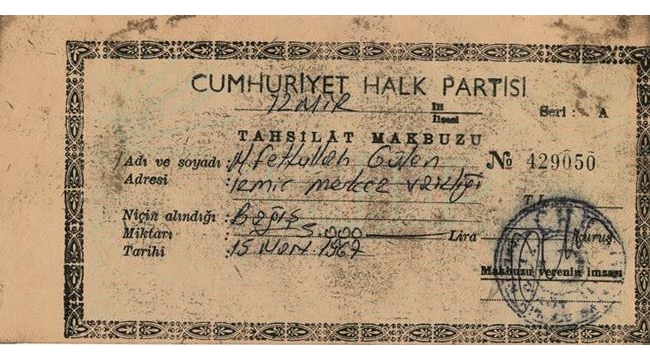 CUMHURİYET HALK PARTİSİ
İZMİR İli
İlçesi
Seri : A
TAHSİLÂT MAKBUZU
Adı ve soyadı : M. Fethullah Gülen
№ 429050
Adresi : izmir merkez vaizliği
T.L.
Niçin alındığı : Bağış
Miktarı : 5.000 Lira Kuruş
Tarihi : 15 1967
Makbuzu verenin imzası
CHP